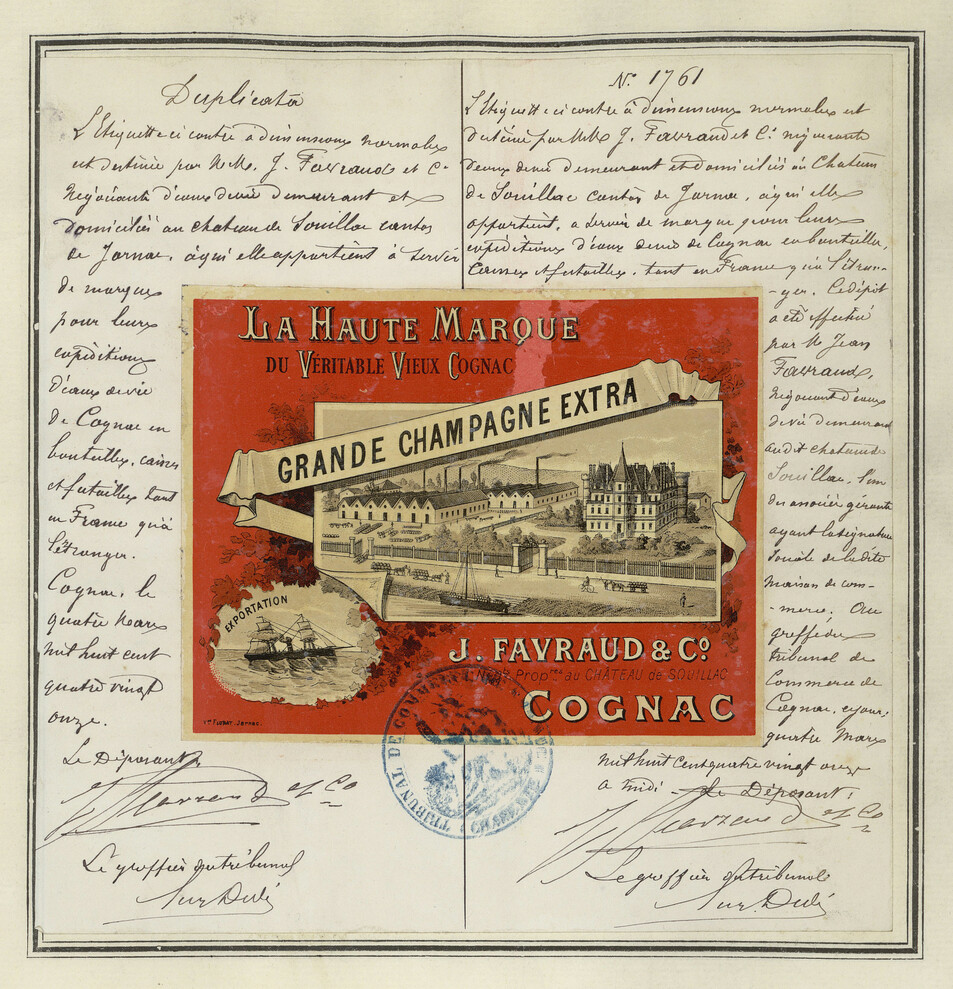 Duplicata
L'Etiquette ci contre a dimensions normales
est destinée par M.M. J. Favraud et Cº
Négociants d'eaux de vie demeurant et
domiciliés au chateau de Souillac canton
de Jarnac, à qui elle appartient à servir
de marque
pour leurs
expéditions
d'eaux de vie
de Cognac en
bouteilles, caisses
et futailles tant
en France qu'à
l'étranger.
Cognac, le
quatre Mars
mil huit cent
quatre vingt
onze.
Le Déposant,
J. Favraud et Co
Le greffier du tribunal
Nº 1761
L'Etiquette ci contre à dimensions normales est
destinée par M.M. J. Favraud et Cº négociants
d'eaux de vie demeurant et domiciliés au Chateau
de Souillac Canton de Jarnac, à qui elle
appartient, a servir de marque pour leurs
expéditions d'eaux de vie de Cognac en bouteilles,
Caisses et futailles, tant en France qu'à l'étran-
-ger. Ce dépôt
a été effectué
par M. Jean
Favraud,
Négociant d'eaux
de vie demeurant
au dit chateau de
Souillac, l'un
des associés gérants
ayant la signature
Sociale de la dite
maison de com-
-merce. Au
greffe du
tribunal de
Commerce de
Cognac, ce jour,
quatre Mars
mil huit cent quatre vingt onze
a midi - Le Déposant:
J. Favraud et Co
Le greffier du tribunal
LA HAUTE MARQUE
DU VÉRITABLE VIEUX COGNAC
GRANDE CHAMPAGNE EXTRA
EXPORTATION
J. FAVRAUD & Cº
Négts Proprres au CHÂTEAU de SOUILLAC
COGNAC
TRIBUNAL DE COMMERCE